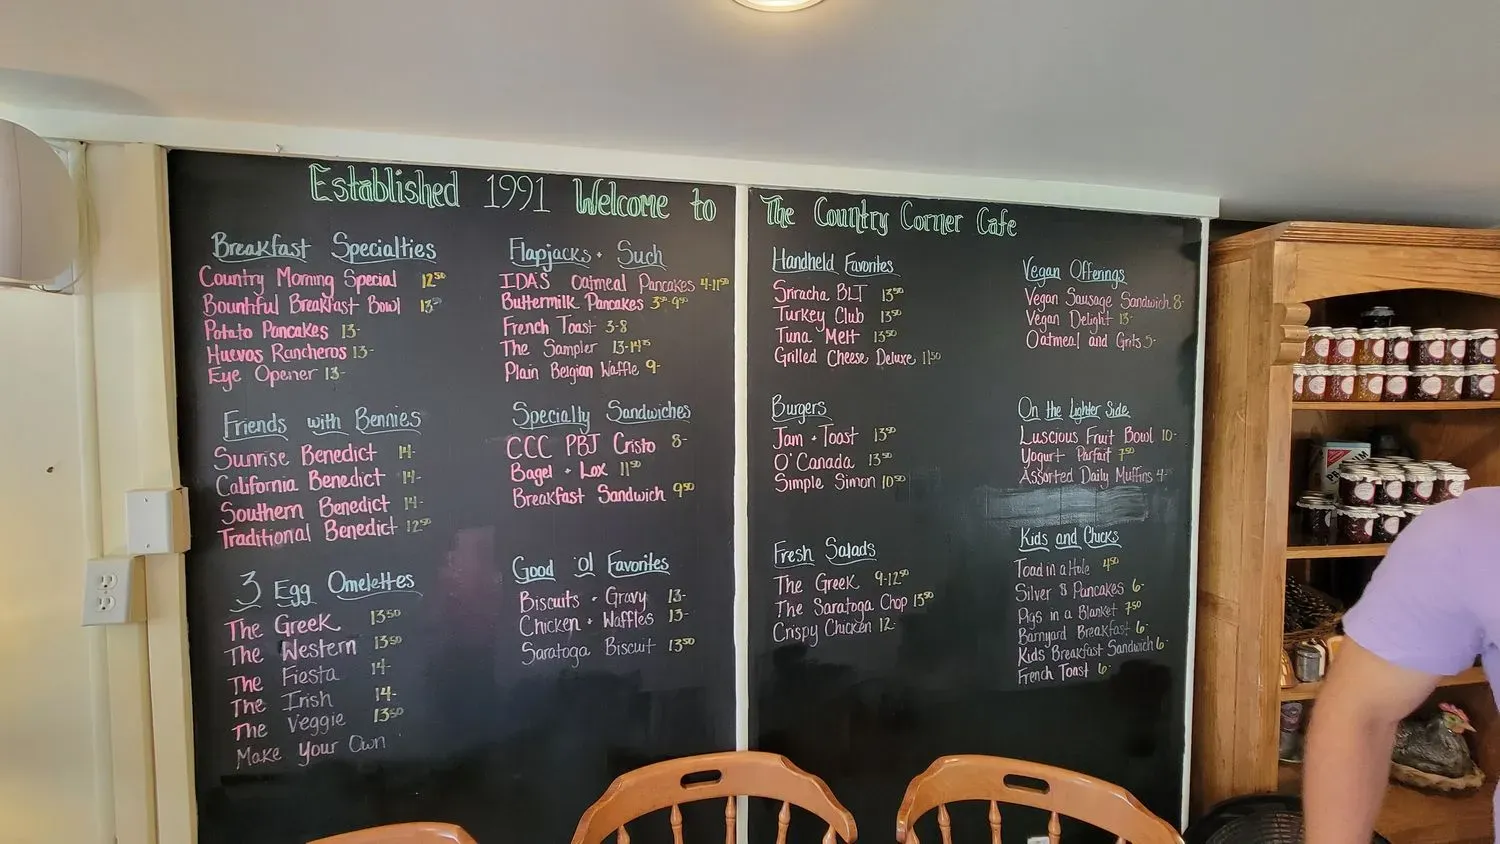 Established 1991 Welcome to The Country Corner Cafe
Breakfast Specialties
Country Morning Special 12.50
Bountiful Breakfast Bowl 13.50
Potato Pancakes 13-
Huevos Rancheros 13-
Eye Opener 13-
Friends with Bennies
Sunrise Benedict 14-
California Benedict 14-
Southern Benedict 14-
Traditional Benedict 12.50
3 Egg Omelettes
The Greek 13.50
The Western 13.50
The Fiesta 14-
The Irish 14-
The Veggie 13.50
Make Your Own
Flapjacks + Such
IDA'S Oatmeal Pancakes 4-11.50
Buttermilk Pancakes
French Toast 3-8
The Sampler
Plain Belgian Waffle 9-
Specialty Sandwiches
CCC PBJ Cristo 8-
Bagel + Lox 11.50
Breakfast Sandwich 9.50
Good 'ol Favorites
Biscuits + Gravy 13-
Chicken + Waffles 13-
Saratoga Biscuit 13.50
Handheld Favorites
Sriracha BLT 13.50
Turkey Club 13.50
Tuna Melt 13.50
Grilled Cheese Deluxe 11.50
Burgers
Jam + Toast 13.50
O'Canada 13.50
Simple Simon 10.50
Fresh Salads
The Greek 9-12.50
The Saratoga Chop 13.50
Crispy Chicken 12-
Vegan Offerings
Vegan Sausage Sandwich 8-
Vegan Delight 13-
Oatmeal and Grits 5-
On the Lighter Side
Luscious Fruit Bowl 10-
Yogurt Parfait 7.50
Assorted Daily Muffins 4-
Kids and Chicks
Toad in a Hole 4.50
Silver $ Pancakes 6-
Pigs in a Blanket 7.50
Barnyard Breakfast 6-
Kids' Breakfast Sandwich 6-
French Toast 6-